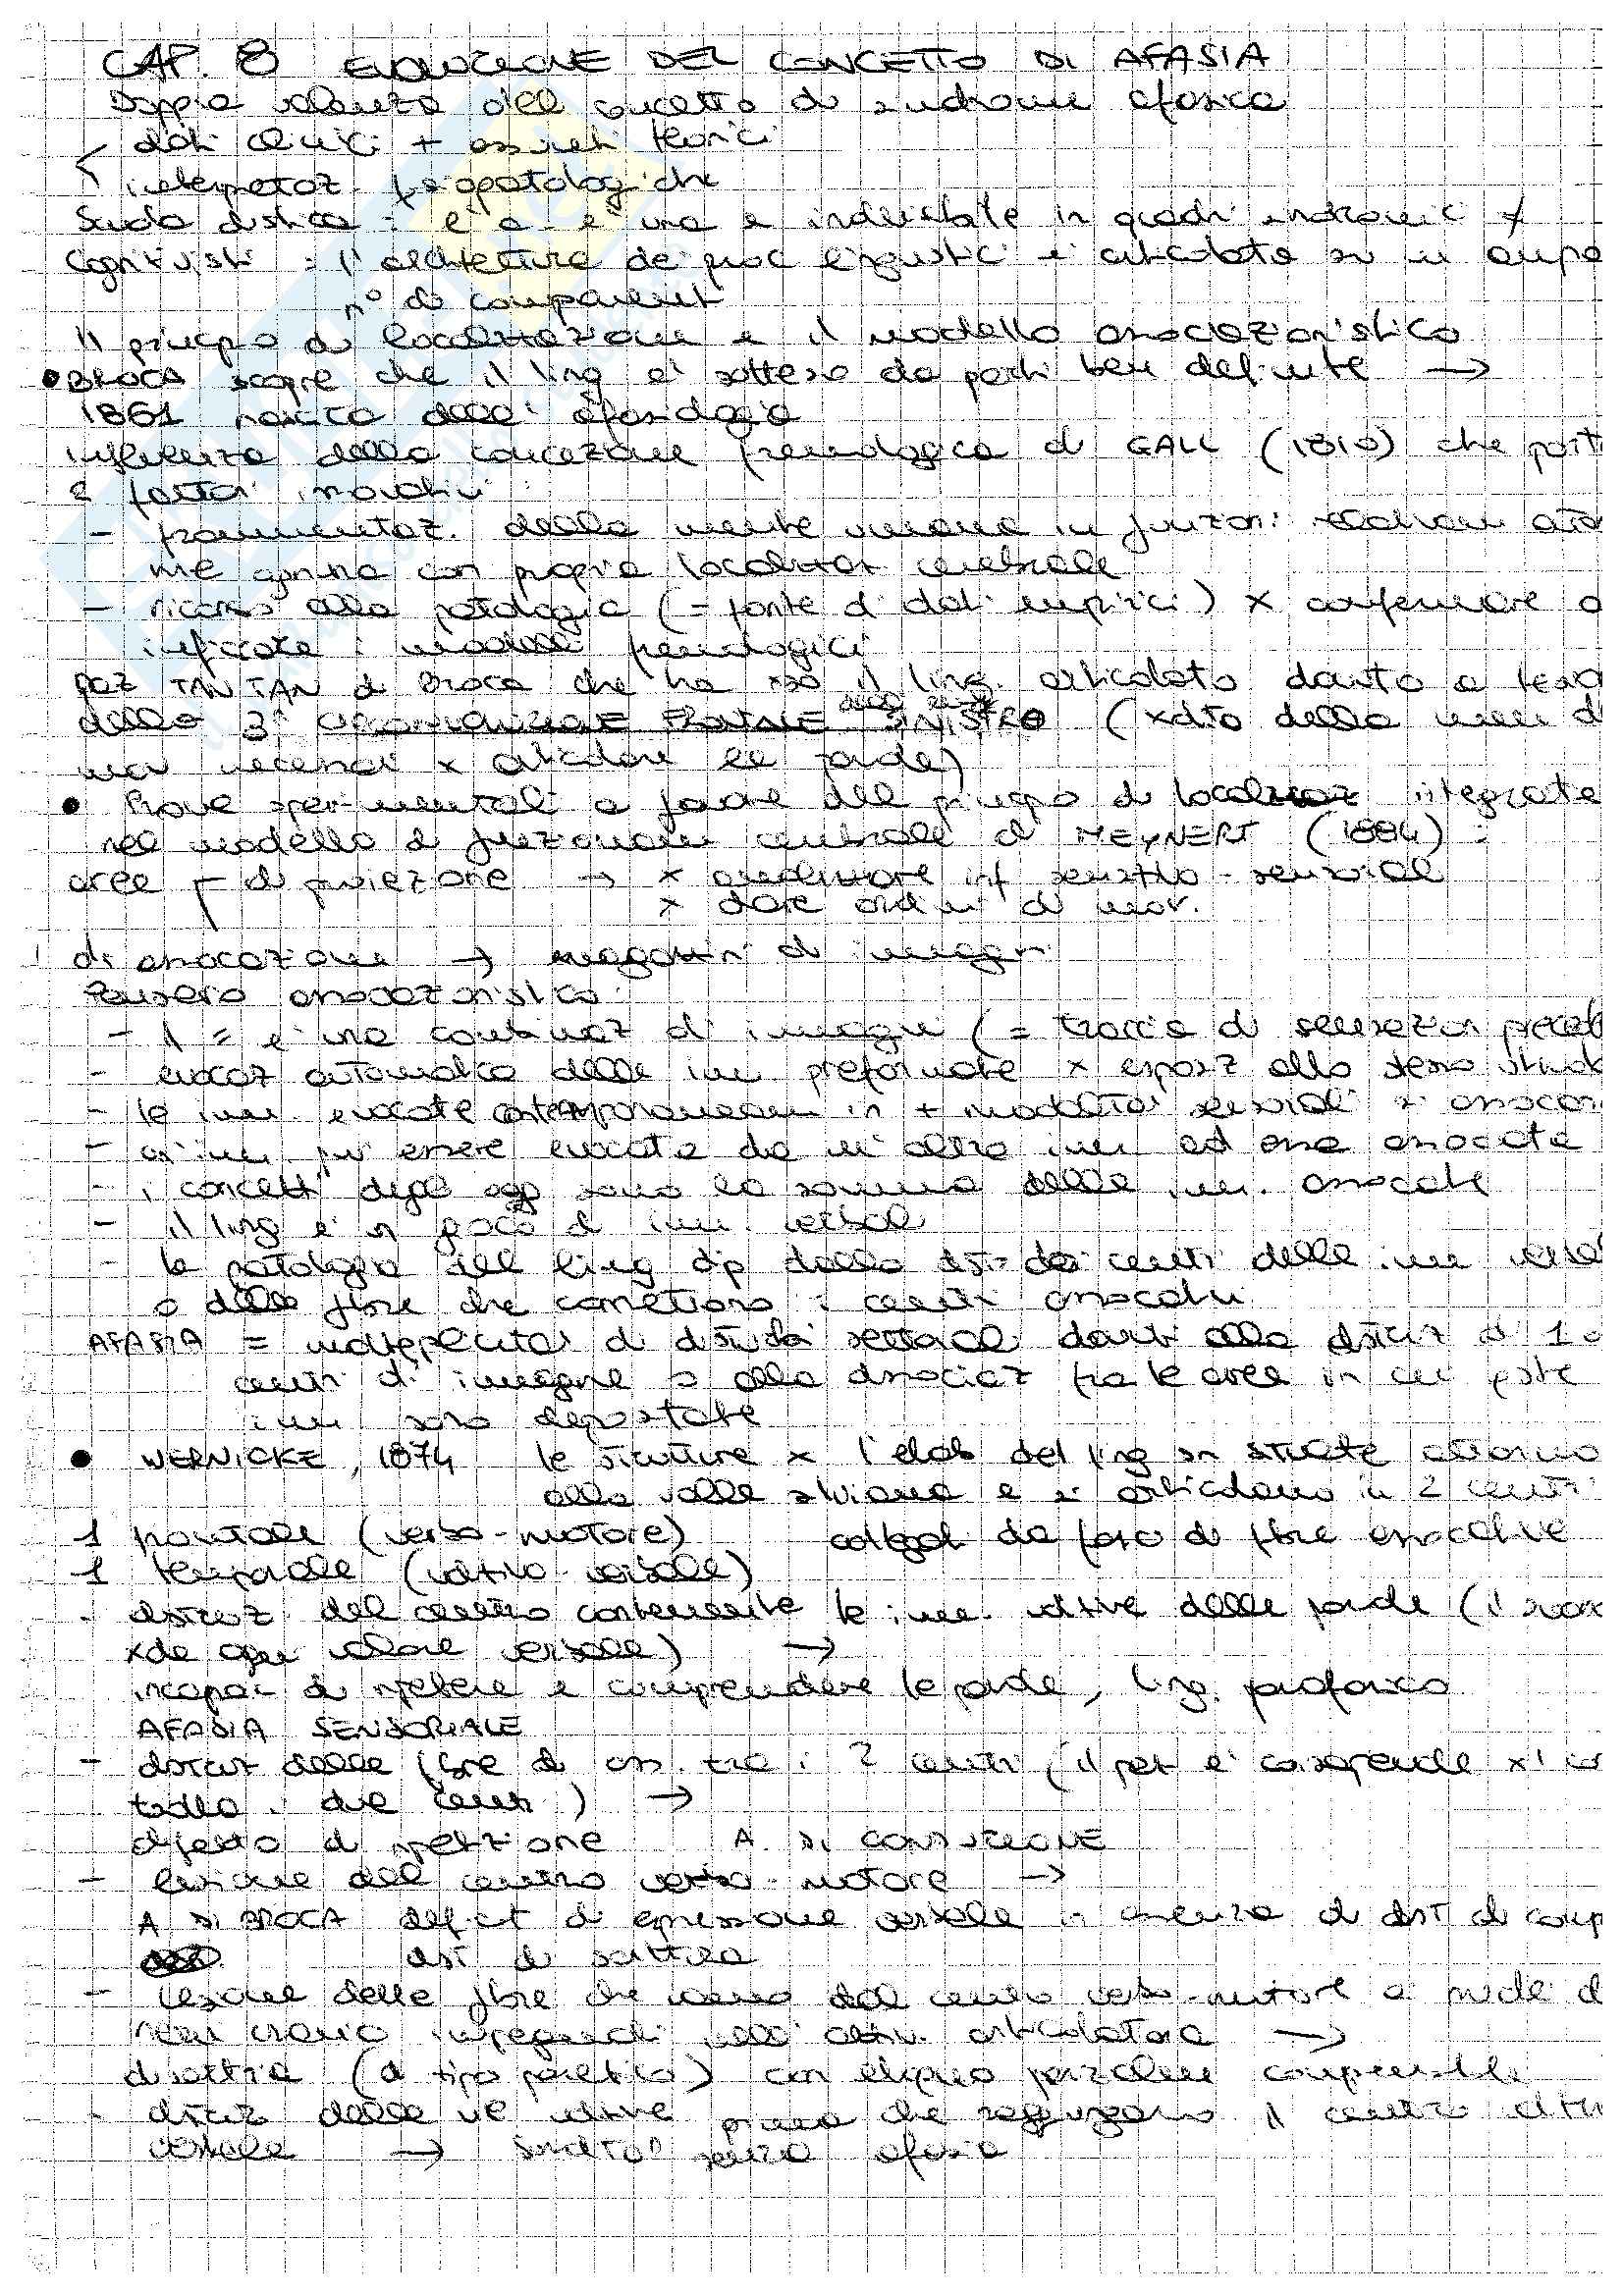 CAP. 8 EVOLUZIONE DEL CONCETTO DI AFASIA
Doppia valenza del concetto di sindrome afasica
dati clinici + assunti teorici
interpretaz. fisiopatologiche
Scuola olistica : l'a. è una e indivisibile in quadri sindromici
Cognitivisti : l'architettura dei proc linguistici è articolata su un ampio
n° di componenti
Il principio di localizzazione e il modello associazionistico
• BROCA scopre che il ling è sotteso da parti ben definite →
1861 nascita dell'afasiologia
influenza della concezione frenologica di GALL (1810) che portò
2 fattori innovativi :
- frammentaz. della mente umana in funzioni relativam
ognuna con propria localizzaz cerebrale
- ricorso alla patologia (= fonte di dati empirici) x confermare o
inficiare i modelli frenologici
paz TAN TAN di Broca che ha xso il ling. articolato dovuto a
della 3ª CIRCONVOLUZIONE FRONTALE SINISTRO (xdita della mem di
mov necessari x articolare le parole)
• Prove sperimentali a favore del principio di localizzaz integrate
nel modello di funzionam cerebrale di MEYNERT (1884) :
aree di proiezione → x analizzare inf sensitivo-sensoriali
x dare ordini di mov.
di associazione → magazzini di immagini
Pensiero associazionistico :
- è una combinaz di immagini (= traccia di sensazioni
- evocaz automatica delle imm preformate x esposiz allo stesso
- le imm. evocate contemporaneam in + modalità sensoriali si
- ogni imm. può essere evocata da un'altra imm ad essa associata
- i concetti degli ogg sono la somma delle imm. associate
- il ling è un gioco di imm. verbali
- la patologia del ling dip dalla dei centri delle imm
o delle fibre che connettono i centri associativi
AFASIA = molteplicità di disturbi settoriali dovuti alla distruz di 1 o
centri di immagine o alla dissociaz fra le aree in cui
imm sono depositate
• WERNICKE, 1874 le strutture x l'elab del ling sn situate attorno
alla valle silviana e si articolano in 2 centri
1 frontale (verbo-motore) collegati da fascio di fibre associative
1 temporale (uditivo-verbale)
- distruz. del centro contenente le imm. uditive delle parole (il
xde ogni valore verbale) →
incapac di ripetere e comprendere le parole, ling. parafasico
AFASIA SENSORIALE
- distruz delle fibre di ass. tra i 2 centri (il paz è
i due centri) →
difetto di ripetizione A. DI CONDUZIONE
- lesione del centro verbo-motore →
A DI BROCA deficit di espressione verbale in assenza di dist di comp
dist di scrittura
- lesione delle fibre che vanno dal centro verbo-motore ai nuclei dei
nervi cranici impegnati nell'attiv. articolatoria →
disartria (di tipo paretico) con eloquio parzialm comprensibile
- distruz delle vie uditive prima che raggiungano il centro
verbale → sordità senza afasia